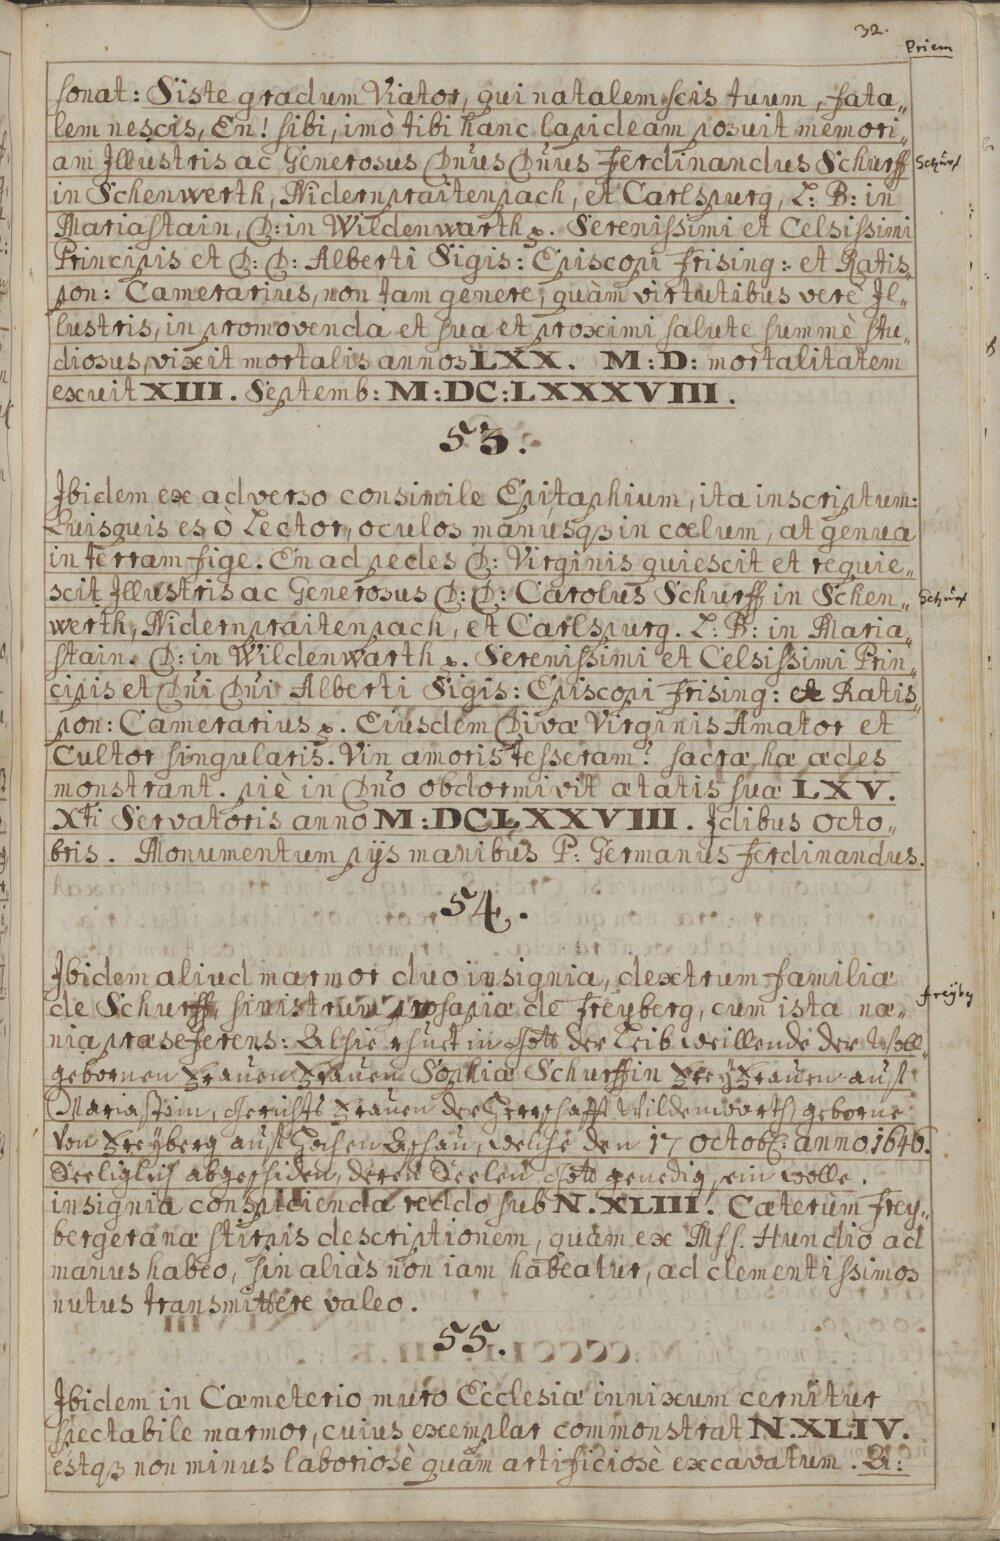 32.
Priem
sonat: Siste gradum Viator, qui natalem scis tuum, fata„
lem nescis, En! sibi, imò tibi hanc lapideam posuit memori„
am Illustris ac Generosus Dn̄us Dn̄us Ferdinandus Schurff
Schürf
in Schenwerth, Nidernpraitenpach, et Carlspurg, L: B: in
Mariastain, D: in Wildenwarth p. Serenissimi et Celsissimi
Principis et D: D: Alberti Sigis: Episcopi Frising: et Ratis„
pon: Camerarius, non tam genere, quàm virtutibus verè Il„
lustris, in promovenda et sua et proximi salute summè stu„
diosus, vixit mortalis annos LXX. M: D: mortalitatem
exuit XIII. Septemb: M:DC:LXXXVIII.
53.
Ibidem ex adverso consimile Epitaphium, ita inscriptum:
Quisquis es ò Lector, oculos manusqz in cœlum, at genua
in terram fige. En ad pedes D: Virginis quiescit et requie„
scit Illustris ac Generosus D: D: Carolus Schurff in Schen„
Schürf
werth, Nidernpraitenpach, et Carlspurg. L: B: in Maria„
stain. D: in Wildenwarth p. Serenissimi et Celsissimi Prin„
cipis et Dn̄i Dn̄i Alberti Sigis: Episcopi Frising: et Ratis„
pon: Camerarius p. Eiusdem Divæ Virginis Amator et
Cultor singularis. Vin amoris tesseram? sacræ hæ ædes
monstrant. piè in Dn̄o obdormivit ætatis suæ LXV.
Xti Servatoris anno M:DCLXXVIII. Idibus Octo„
bris. Monumentum pijs manibus P: Germanus Ferdinandus.
54.
Ibidem aliud marmor duo insignia, dextrum familiæ
de Schurff, sinistrum prosapiæ de Freyberg, cum ista næ„
Freÿbg
nia præseferens: Alhie rhuet in Gott der Leib weillende der Woll„
gebornen Frauen Frauen Sophia Schurffin FreÿFrauen auf
Mariastein, Gerichts Frauen der Herrschafft Wildenwarth, geborne
von Freÿberg auf Hochen Aschau, welche den 17 Octob: anno 1646.
Seeliglich abgeschiden, deren Seelen Gott genedig sein wolle.
insignia conspicienda reddo sub N. XLIII. Cæterùm Frey„
bergeranæ stirpis descriptionem, quàm ex Mss. Hundio ad
manus habeo, sin aliàs non iam habeatur, ad clementissimos
nutus transmittere valeo.
55.
Ibidem in Cæmeterio muro Ecclesiæ innixum cernitur
spectabile marmor, cuius exemplar commonstrat N. XLIV.
estqz non minus laboriosè quàm artificiosè excavatum. A: